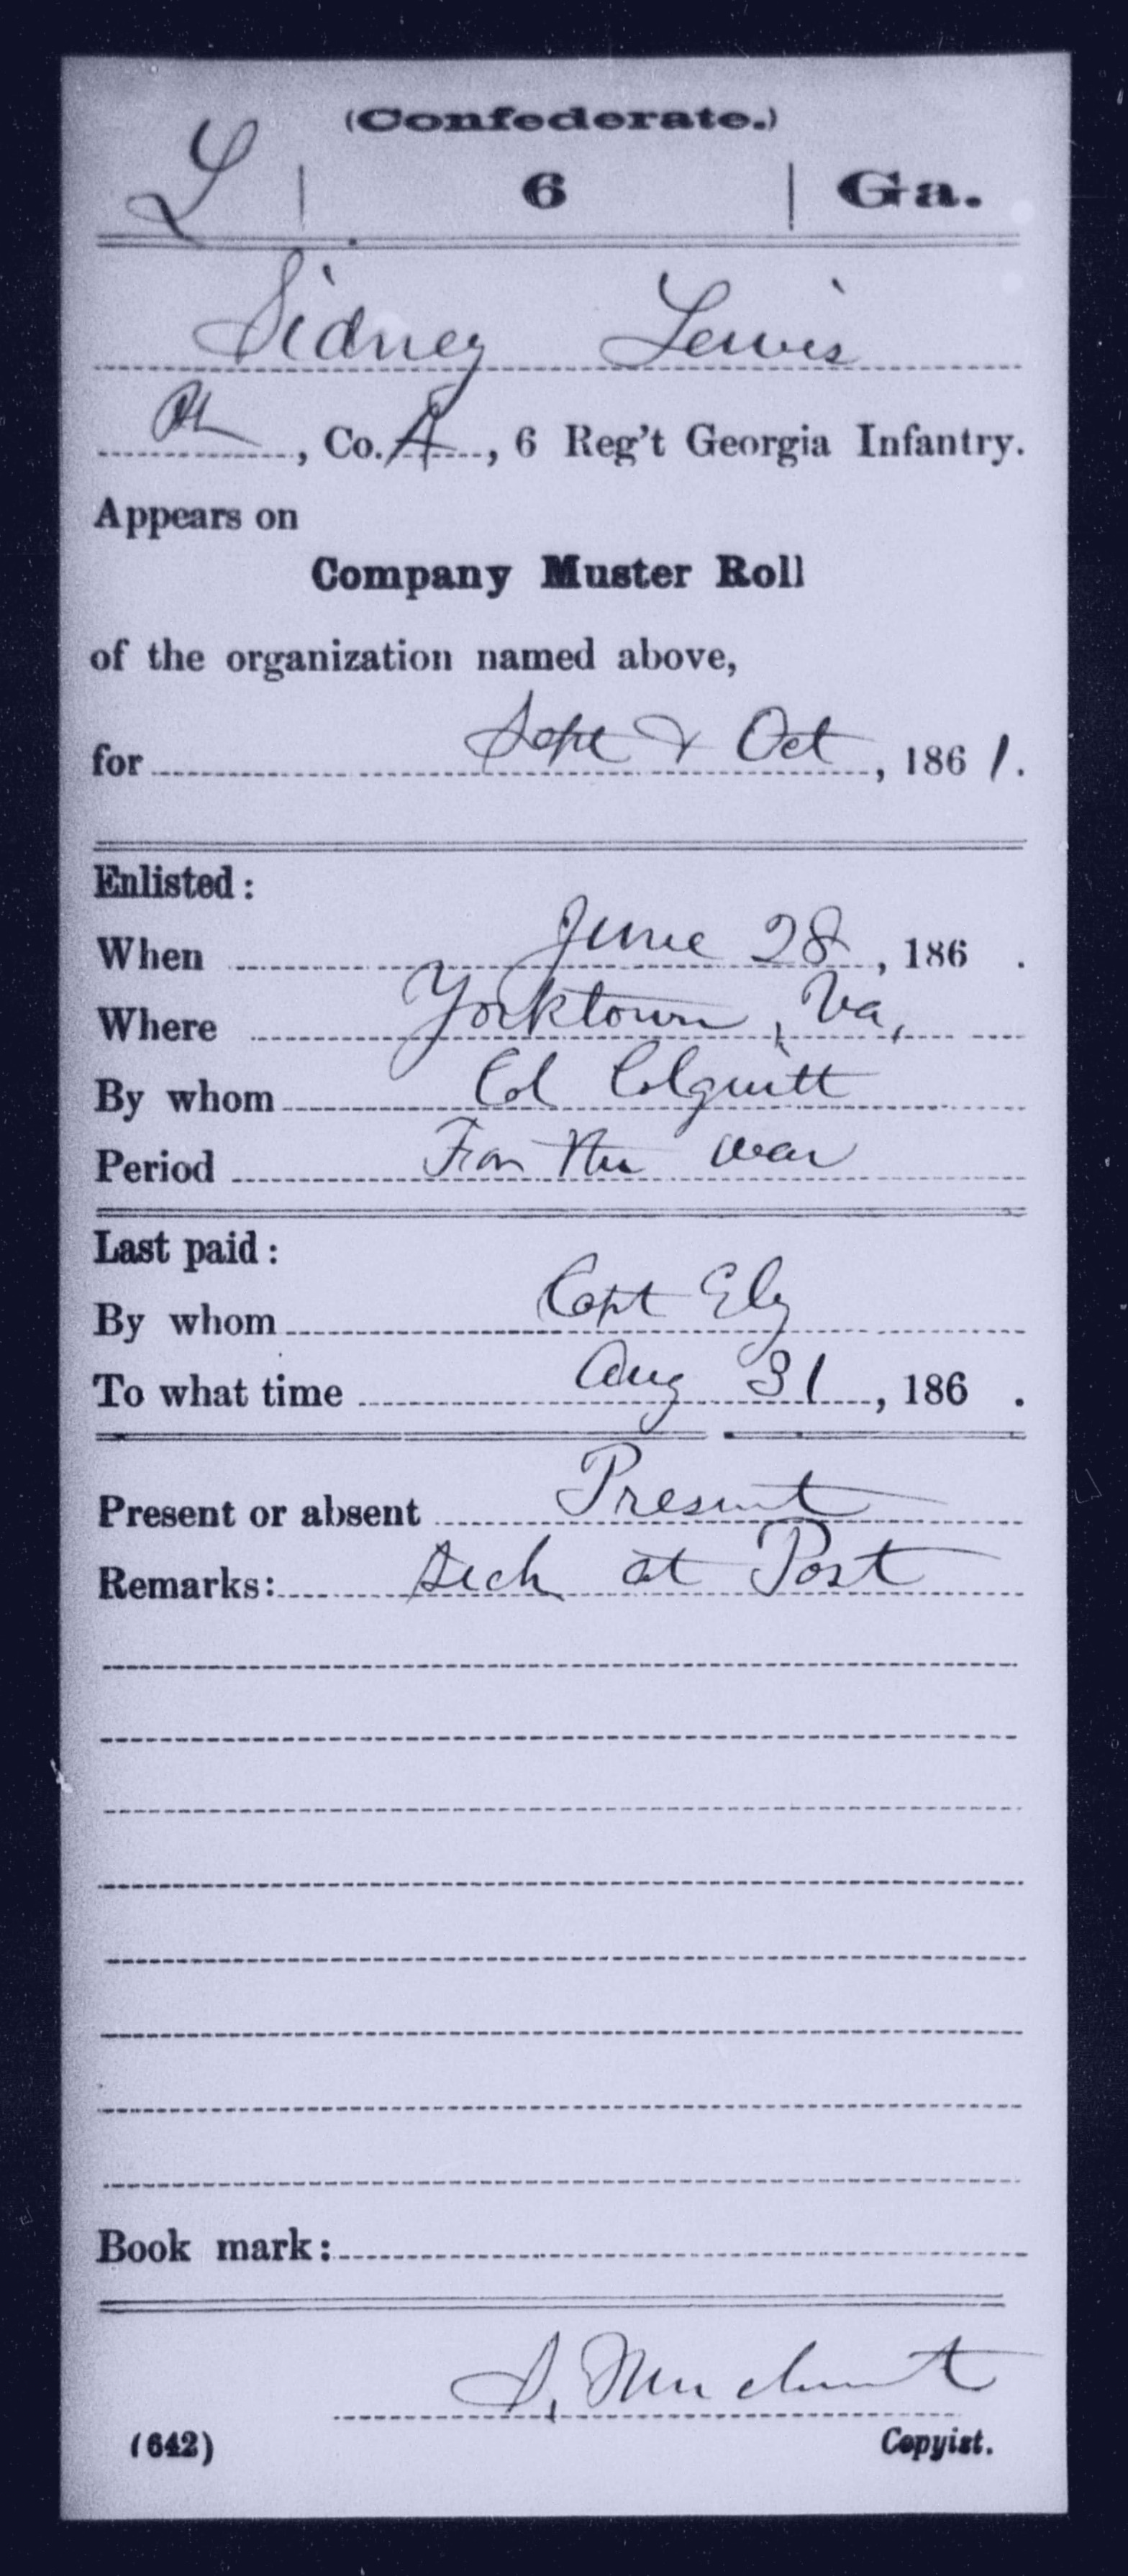 (Confederate.)
L | 6 | Ga.
Sidney Lewis
, Co. A, 6 Reg't Georgia Infantry.
Appears on
Company Muster Roll
of the organization named above,
for Sept & Oct, 1861.
Enlisted:
When June 28, 186 .
Where Yorktown, Va,
By whom Col Colquitt
Period For the war
Last paid:
By whom Capt Ely
To what time Aug 31, 186 .
Present or absent Present
Remarks: Sick at Post
Book mark:
S. Merchant
(642) Copyist.